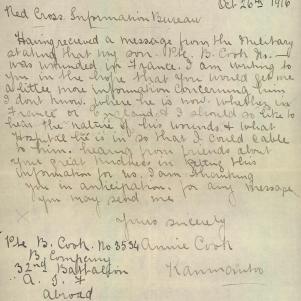 Oct 26th 1916
Red Cross Information Bureau
Having recieved a message from the Military
stating that my son. Pte B. Cook No. -
was wounded in France. I am writing to
you in the hope that you would get me
a little more information concerning him
I don't know where he is now whether in
France or England & I should so like to
hear the nature of his wounds & what
Hospital he is in so that I could cable
to him. hearing from friends about
your great kindness in getting this
information for us. I am thanking
you in anticipation for any message
you may send me
Yours sincerely
Annie Cook
Kanmantoo
Pte B. Cook. No 3534
B. Company
32nd Battalion
A. I. F
Abroad